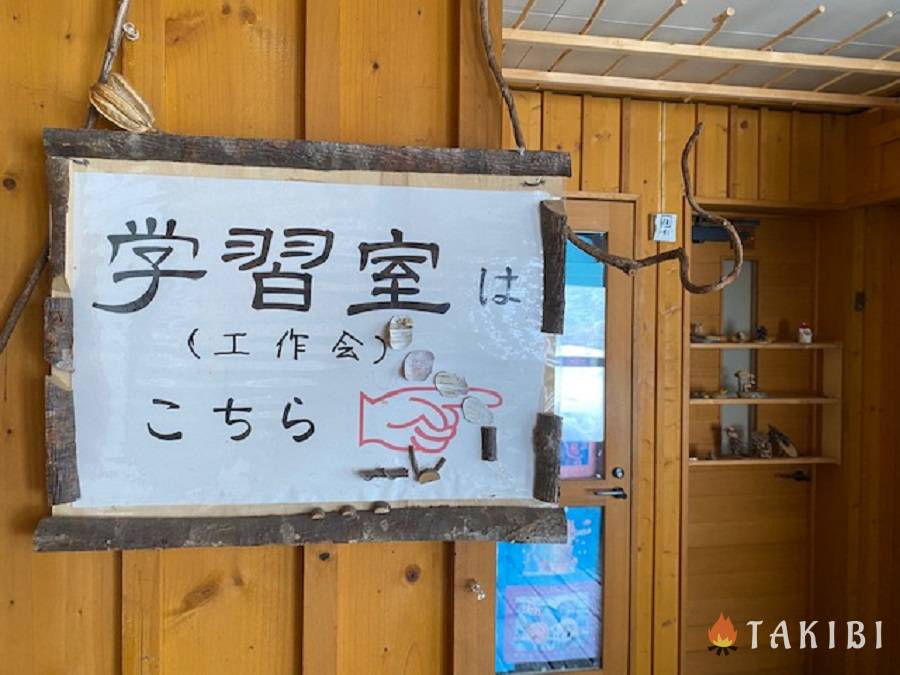 学習室は
(工作会)
こちら
TAKIBI